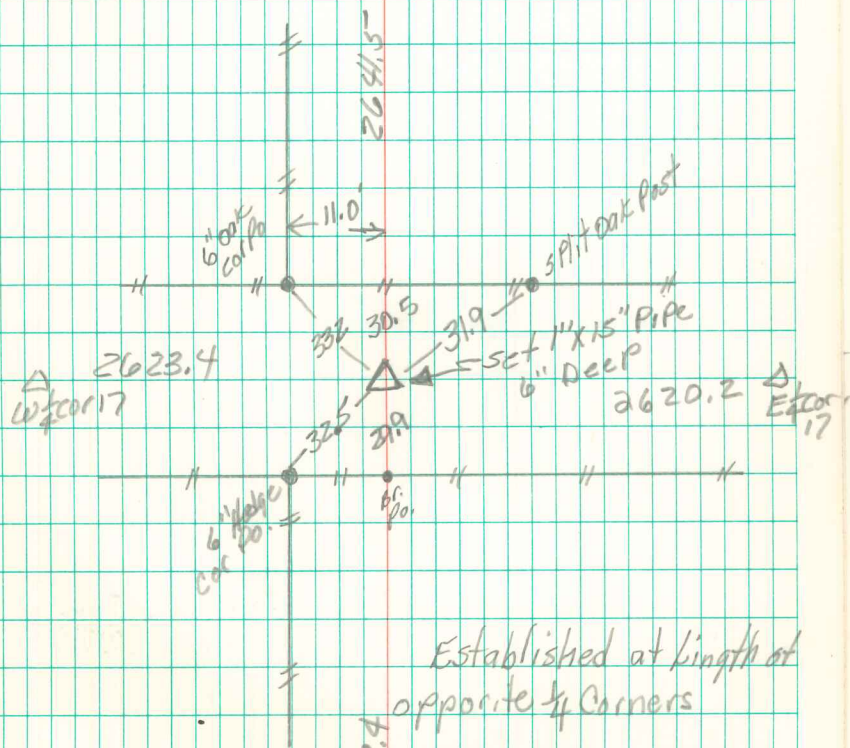 2641.5
11.0'
6" Oak
cor po
Split Oak Post
30.5
332
31.9
Set 1"X15" Pipe
6" Deep
2623.4
W¼cor17
2620.2
E¼cor.
17
32.5'
29.9
br.
po.
6" Hedge
cor po.
Established at Length of
opporite ¼ Corners